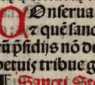 Onserua
⁊ que͂ sanc
rū p͂sidijs nō de
petuis tribue g
Sancti Geo